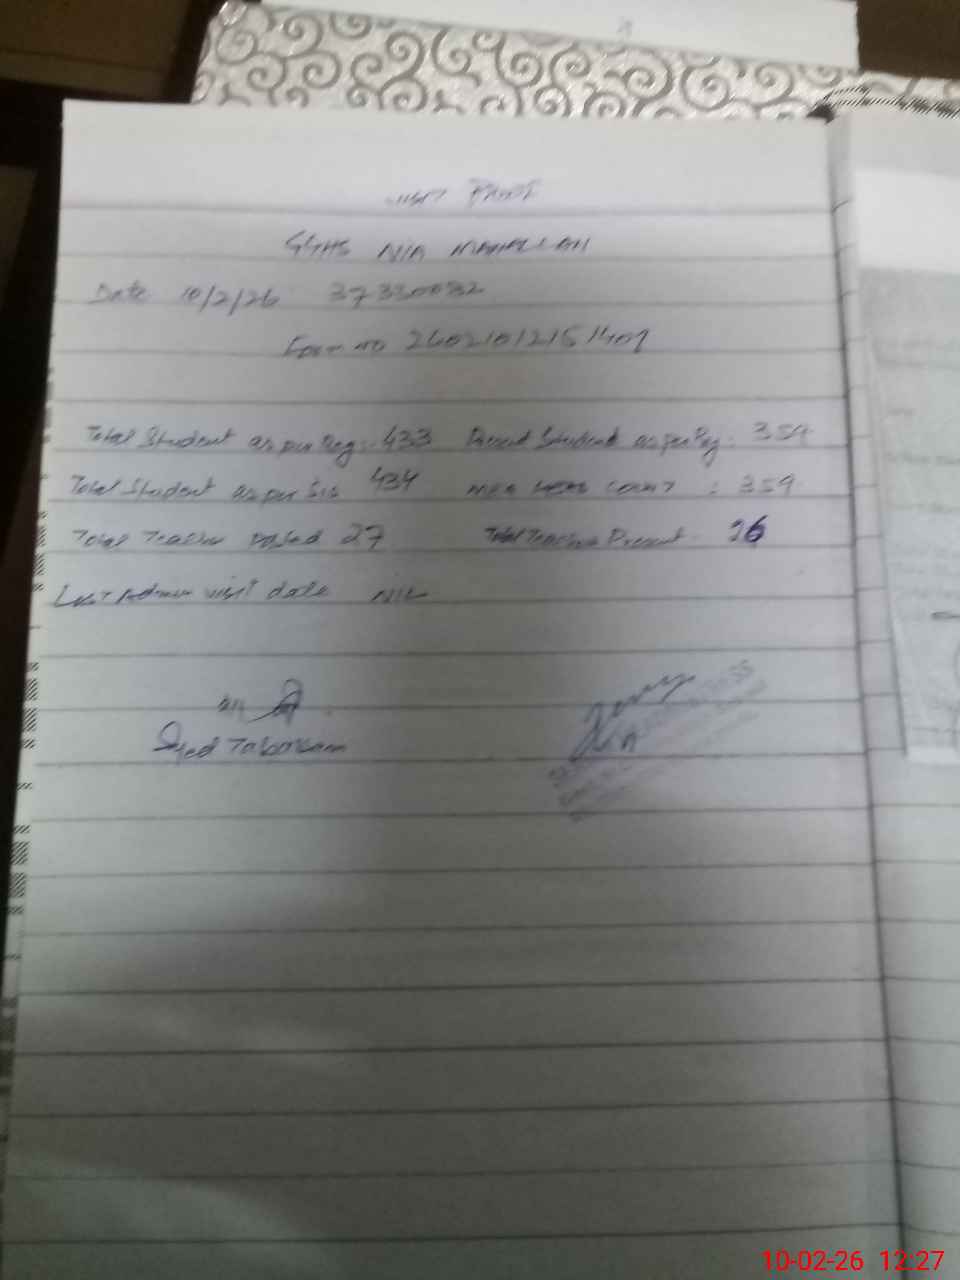 Visit Proof
GGHS NIA MAHALLAH
Date 10/2/26 37330032
Form no 26021012151409
Total Student as per Reg: 433 Present Student as per Reg: 354
Total Student as per Sis 434 MEA Head Count : 354
Total Teacher Posted 27 Total Teacher Present - 26
Last Admin visit date NIL
Syed Tabassam
10-02-26 12:27